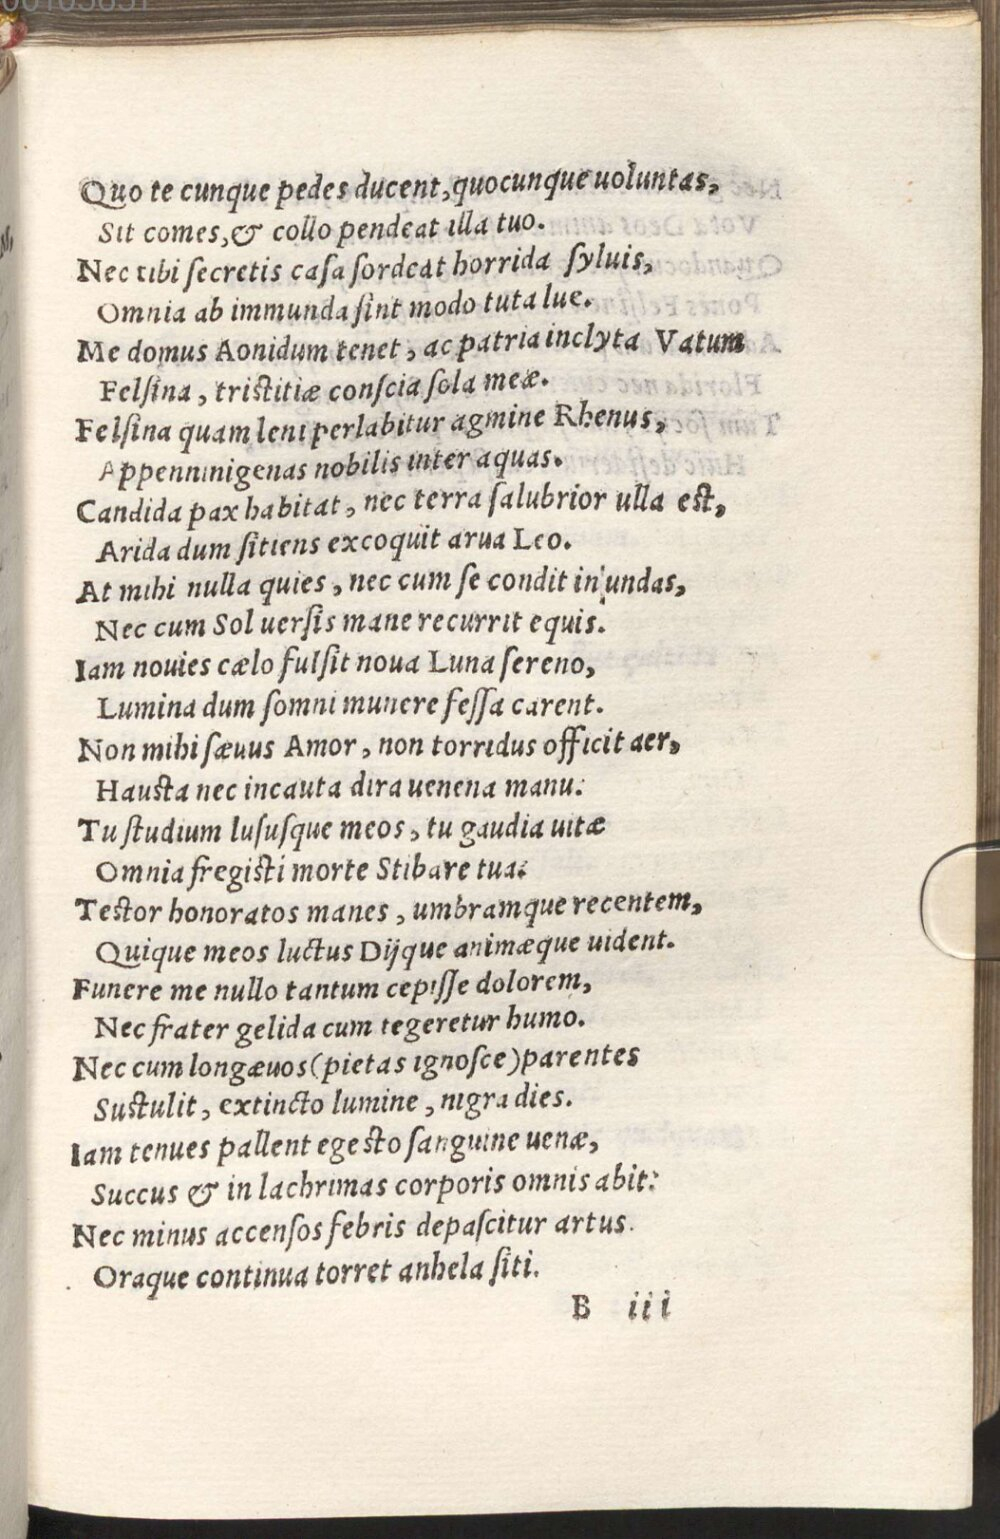 Quo te cunque pedes ducent, quocunque uoluntas,
Sit comes, & collo pendeat illa tuo.
Nec tibi ſecretis caſa ſordeat horrida ſyluis,
Omnia ab immunda ſint modo tuta lue.
Me domus Aonidum tenet, ac patria inclyta Vatum
Felſina, triſtitiæ conſcia ſola meæ.
Felſina quam leni perlabitur agmine Rhenus,
Appenninigenas nobilis inter aquas.
Candida pax habitat, nec terra ſalubrior ulla eſt,
Arida dum ſitiens excoquit arua Leo.
At mihi nulla quies, nec cum ſe condit in undas,
Nec cum Sol uerſis mane recurrit equis.
Iam nouies cælo fulſit noua Luna ſereno,
Lumina dum ſomni munere feſſa carent.
Non mihi ſæuus Amor, non torridus officit aer,
Hauſta nec incauta dira uenena manu:
Tu ſtudium luſuſque meos, tu gaudia uitæ
Omnia fregiſti morte Stibare tua:
Teſtor honoratos manes, umbramque recentem,
Quique meos luctus Dijque animæque uident.
Funere me nullo tantum cepiſſe dolorem,
Nec frater gelida cum tegeretur humo.
Nec cum longæuos (pietas ignoſce) parentes
Suſtulit, extincto lumine, nigra dies.
Iam tenues pallent egeſto ſanguine uenæ,
Succus & in lachrimas corporis omnis abit:
Nec minus accenſos febris depaſcitur artus.
Oraque continua torret anhela ſiti.
B iii